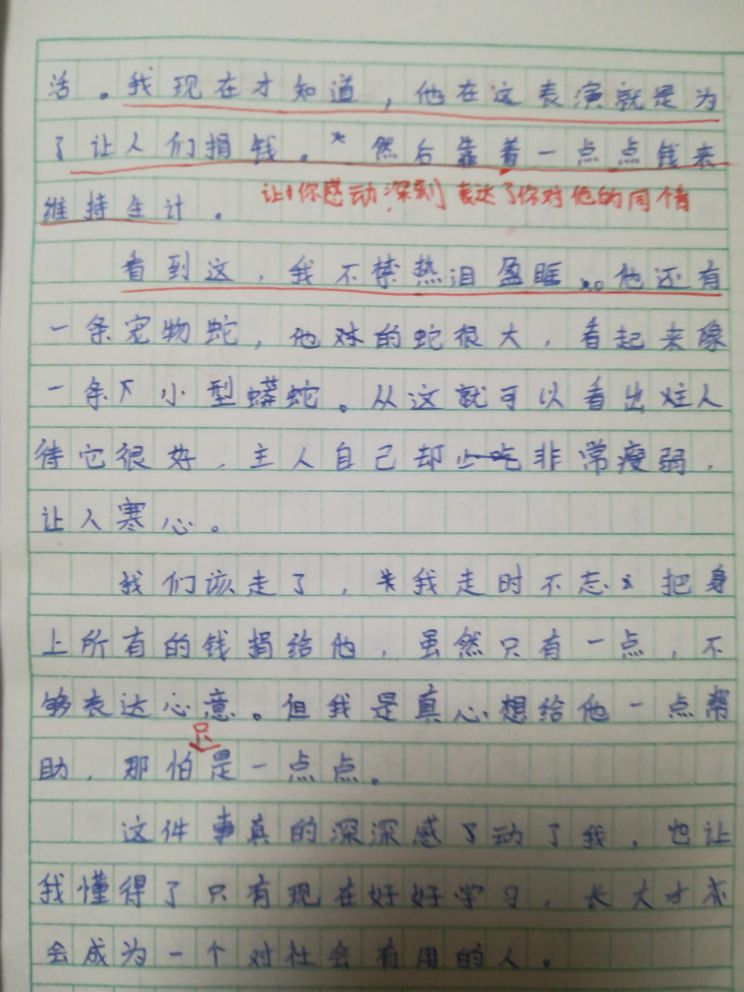 活。我现在才知道，他在这表演就是为
了让人们捐钱。然后靠着一点点钱来
维持生计。
让你感动深刻 表达了你对他的同情
看到这，我不禁热泪盈眶。他还有
一条宠物蛇，他对的蛇很大，看起来像
一条小型蟒蛇。从这就可以看出主人
待它很好，主人自己却非常瘦弱，
让人寒心。
我们该走了，我走时不忘把身
上所有的钱捐给他，虽然只有一点，不
够表达心意。但我是真心想给他一点帮
只
助，那怕是一点点。
这件事真的深深感了动了我，也让
我懂得了只有现在好好学习，长大才
会成为一个对社会有用的人。